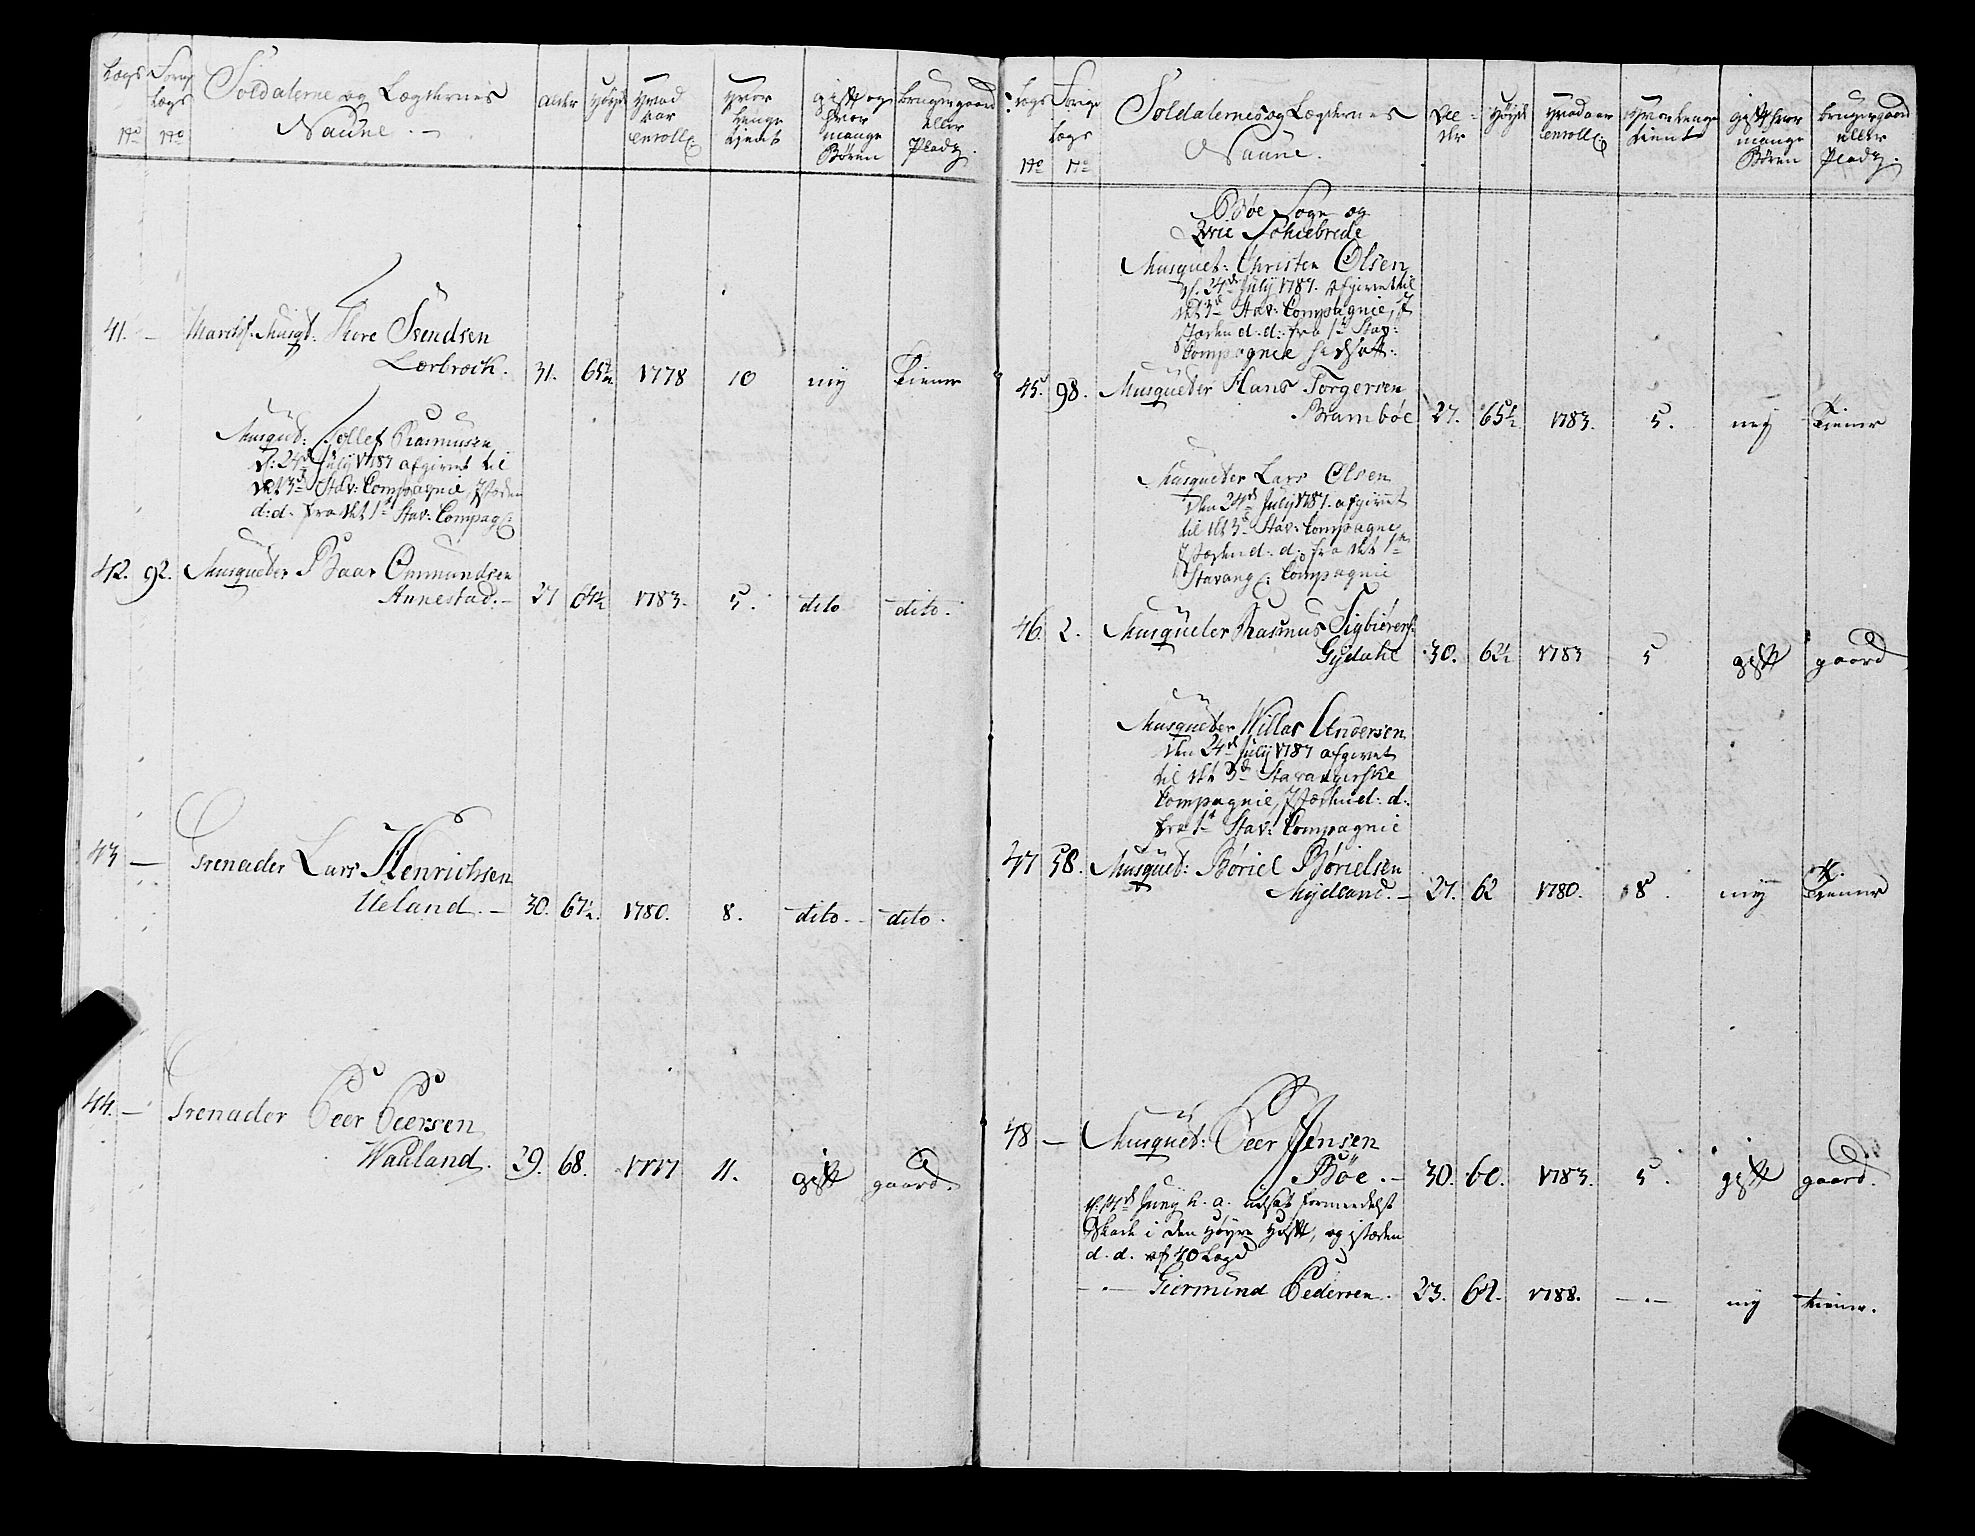 Lægs No
Forige Lægs No
Soldaterne og Lægdernes Naune.
Alder
Høyde
Hvad aar enroll.
Hvor lenge tjent
gift og hvor mange Børen
bruger gaard eller Pladz.
41. — Marchs. Musqt: Thore Svendsen
Lærbroch. 31. 65½ 1778 10 nej Tiener
Musqut: Tollef Rasmusen
d: 24de July 1787 afgivet til
det 3de Stav: Compagnie, Jstæden
d:d. fra det 1te Stav: Compag:
42. 92. Musqueter Baar Ommundsen
Annestad. — 27 64½ 1783. 5. dito dito.
43 — Grenader Lars Henrichsen
Ueland. — 30. 67½ 1780. 8. dito. dito.
44. — Grenader Peer Peersen
Waaland. 29. 68. 1777 11. gift gaard.
Lægs No
Forige Lægs No
Soldaternes og Lægdernes Naune.
Al-der
Høyde
Hvad aar enroll.
Hvor lenge tient
gift hvor mange Børen
bruger gaard eller Pladz.
Bøe Sogn og
Øvre Schiebrede
Musquet: Christen Olsen
d. 24de July 1787. afgivet til
det 3de Stav: Compagnie, J
stæden d:d: fra 1te Stav:
Compagnie hidsatt.
45. 98. Musqueter Hans Torgersen
Bramboe 27. 65½ 1783. 5. nej Tiener
Musqueter Lars Olsen
den 24de July 1787. afgivet
til det 3de Stav: Compagnie
Jstæden d: d. fra det 1te
Stavang: Compagnie
46. 2. Musqueter Rasmus Sigbiørens:
Gydahl 30. 62½ 1783 5 gift gaard
Musqueter Willas Andersen
den 24de July 1787 afgivet
til det 3de Stavangerske
Compagnie, Jstæden d: d.
fra 1te Stav: Compagnie
47 58. Musquet: Børiel Børielsen
Mydland. — 27. 62 1780. 8. nej Tiener
48 — Musquet: Peer Jensen
Bøe. — 30. 60. 1783. 5. gift gaard.
d: Juny h. a. udsat formedelst
Skade i den Høyre Hofte, og jstæden
d. d. af 40 Lægd
— . — Giermund Pedersen. 23. 62. 1788. — . — nej tiener.